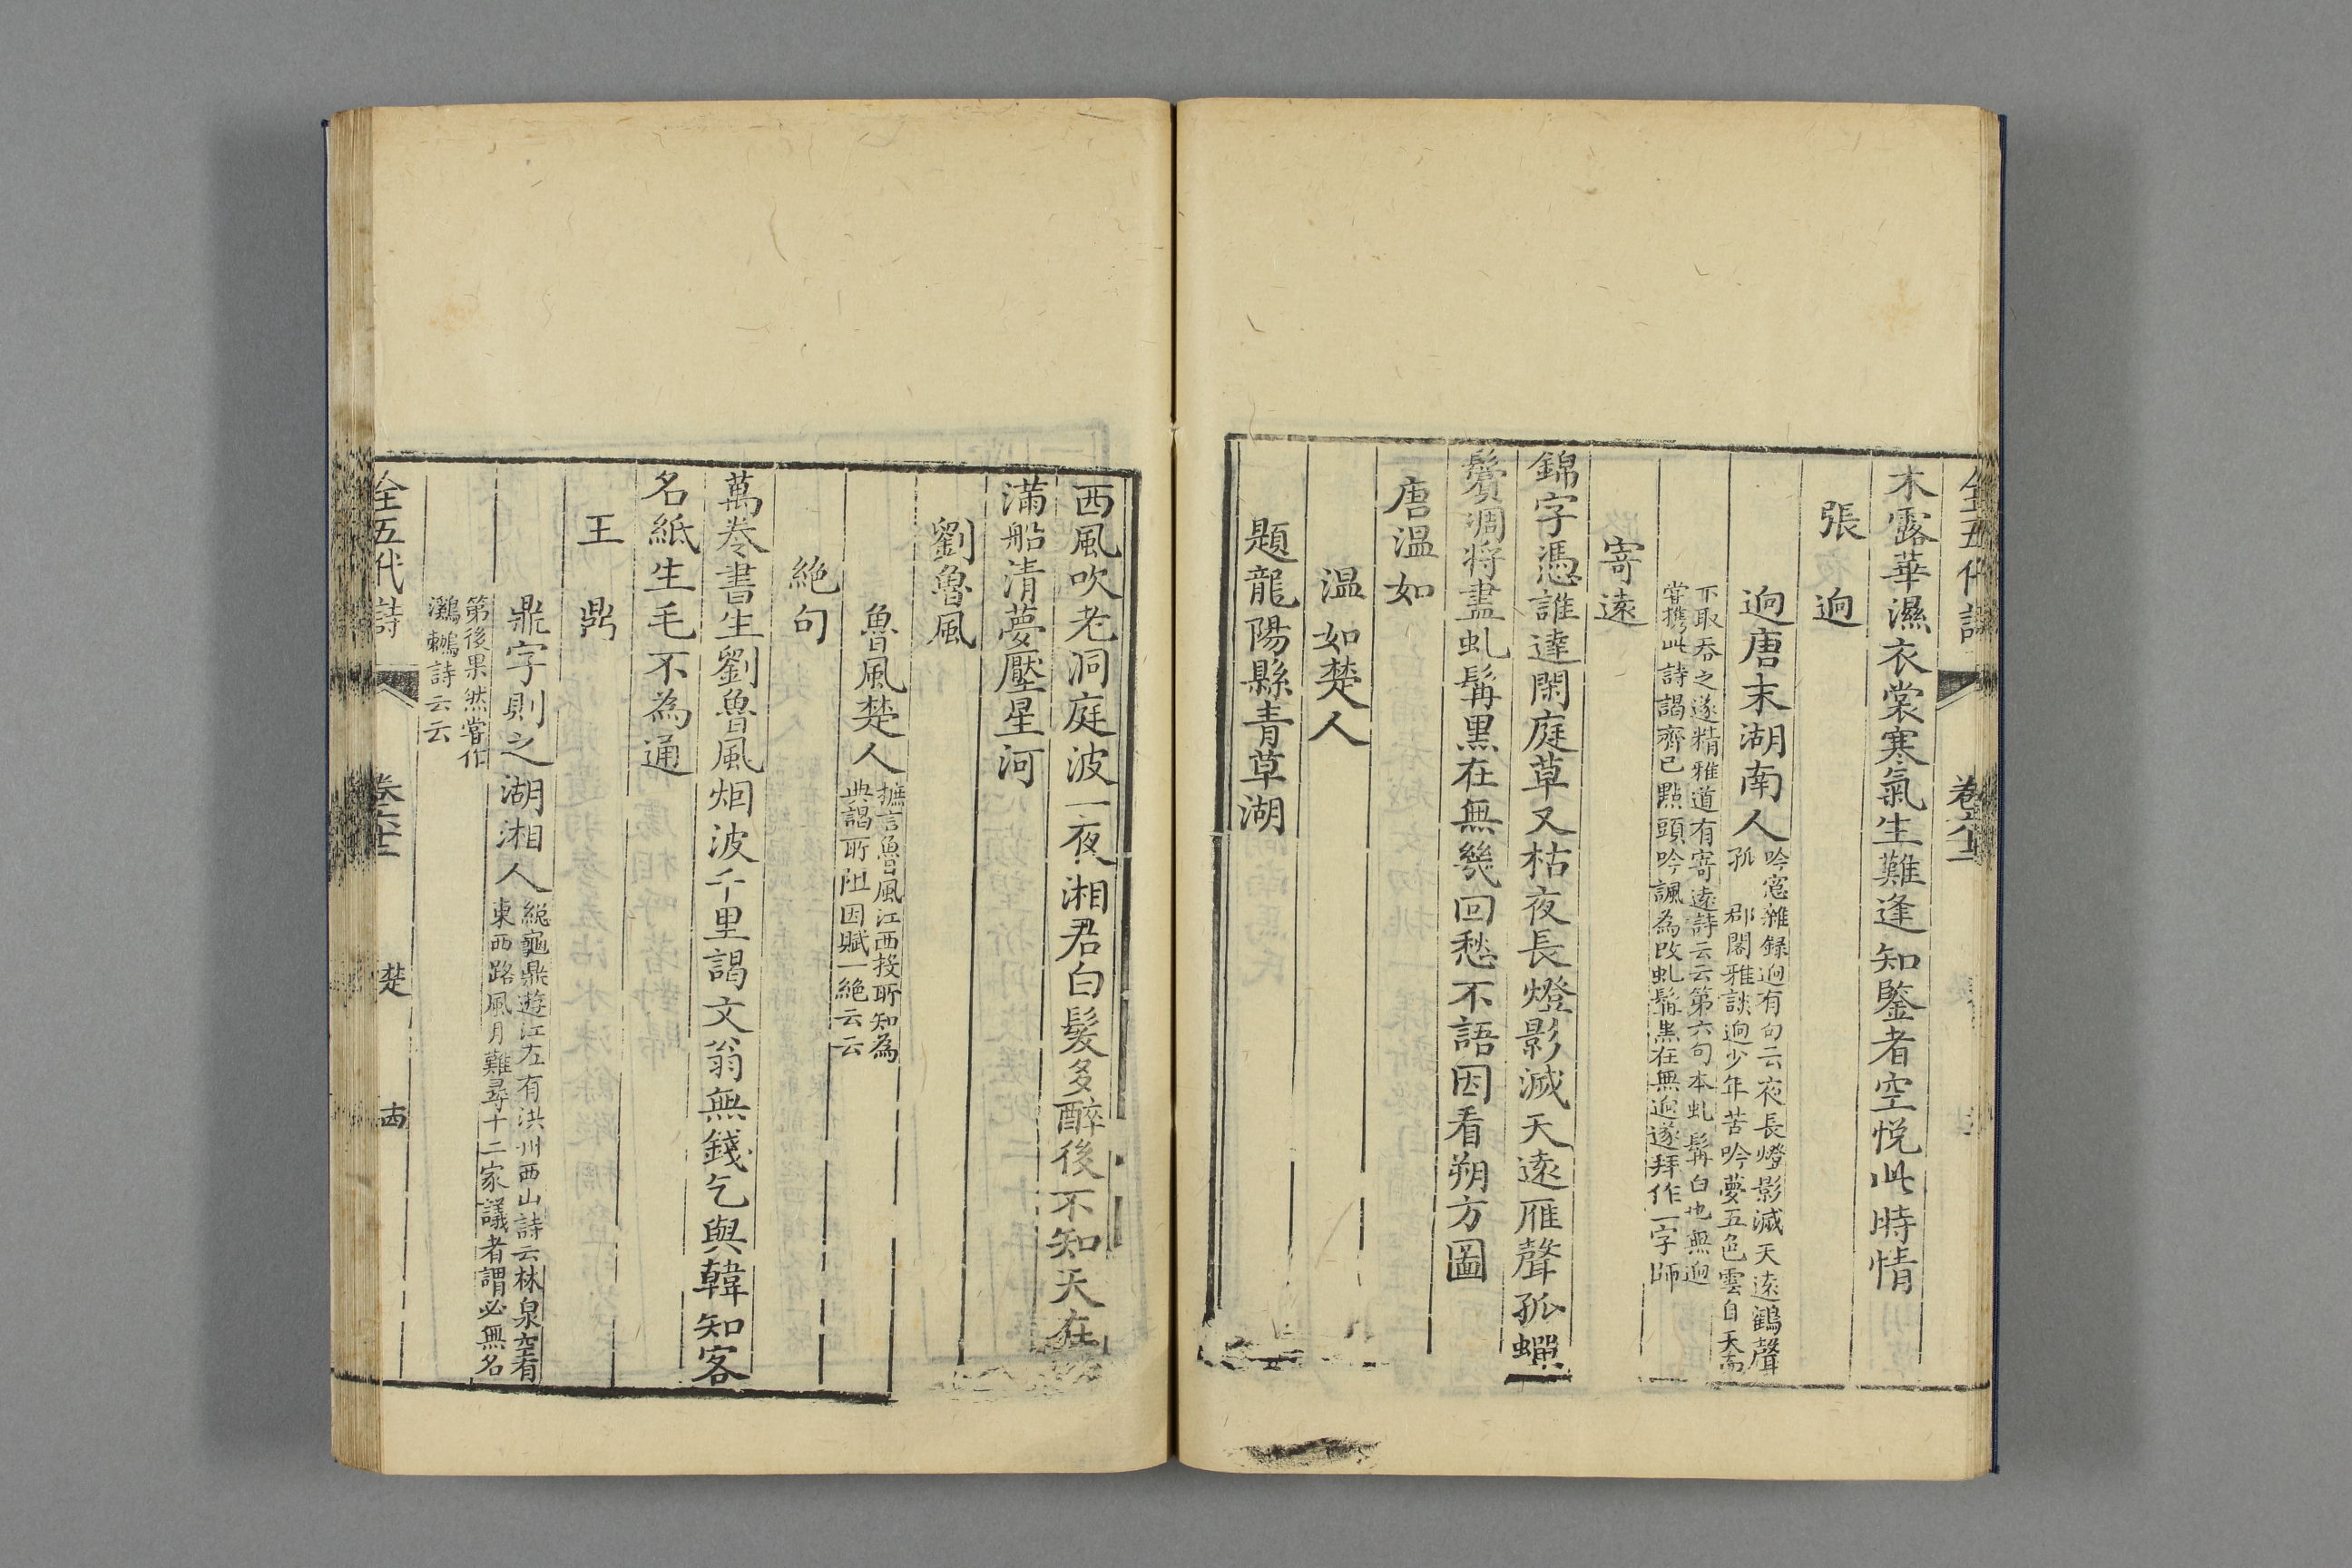 全五代詩
卷六十二
木露華濕衣裳寒氣生難逢知鑒者空悅此時情
張迥
迥唐末湖南人
吟窓雜録迥有句云夜長燈影滅天遠鶴聲
孤 郡閣雅談迥少年苦吟夢五色雲自天而
下取吞之遂精雅道有寄遠詩云云第六句本虬髯白也無迥
嘗携此詩謁齊己點頭吟諷為改虬髯黒在無迥遂拜作一字師
寄遠
錦字憑誰達閑庭草又枯夜長燈影滅天遠雁聲孤蟬
鬢凋将盡虬髯黒在無幾回愁不語因看朔方圖
唐温如
温如楚人
題龍陽縣青草湖
西風吹老洞庭波一夜湘君白髮多醉後不知天在
滿船清夢壓星河
劉魯風
魯風楚人
摭言魯風江西投所知為
典謁所阻因賦一絶云云
絶句
萬卷書生劉魯風烟波千里謁文翁無錢乞與韓知客
名紙生毛不為通
王鼎
鼎字則之湖湘人
総龜鼎遊江左有洪州西山詩云林泉空看
東西路風月難尋十二家議者謂必無名
第後果然嘗作
鸂鶒詩云云
全五代詩
楚
古